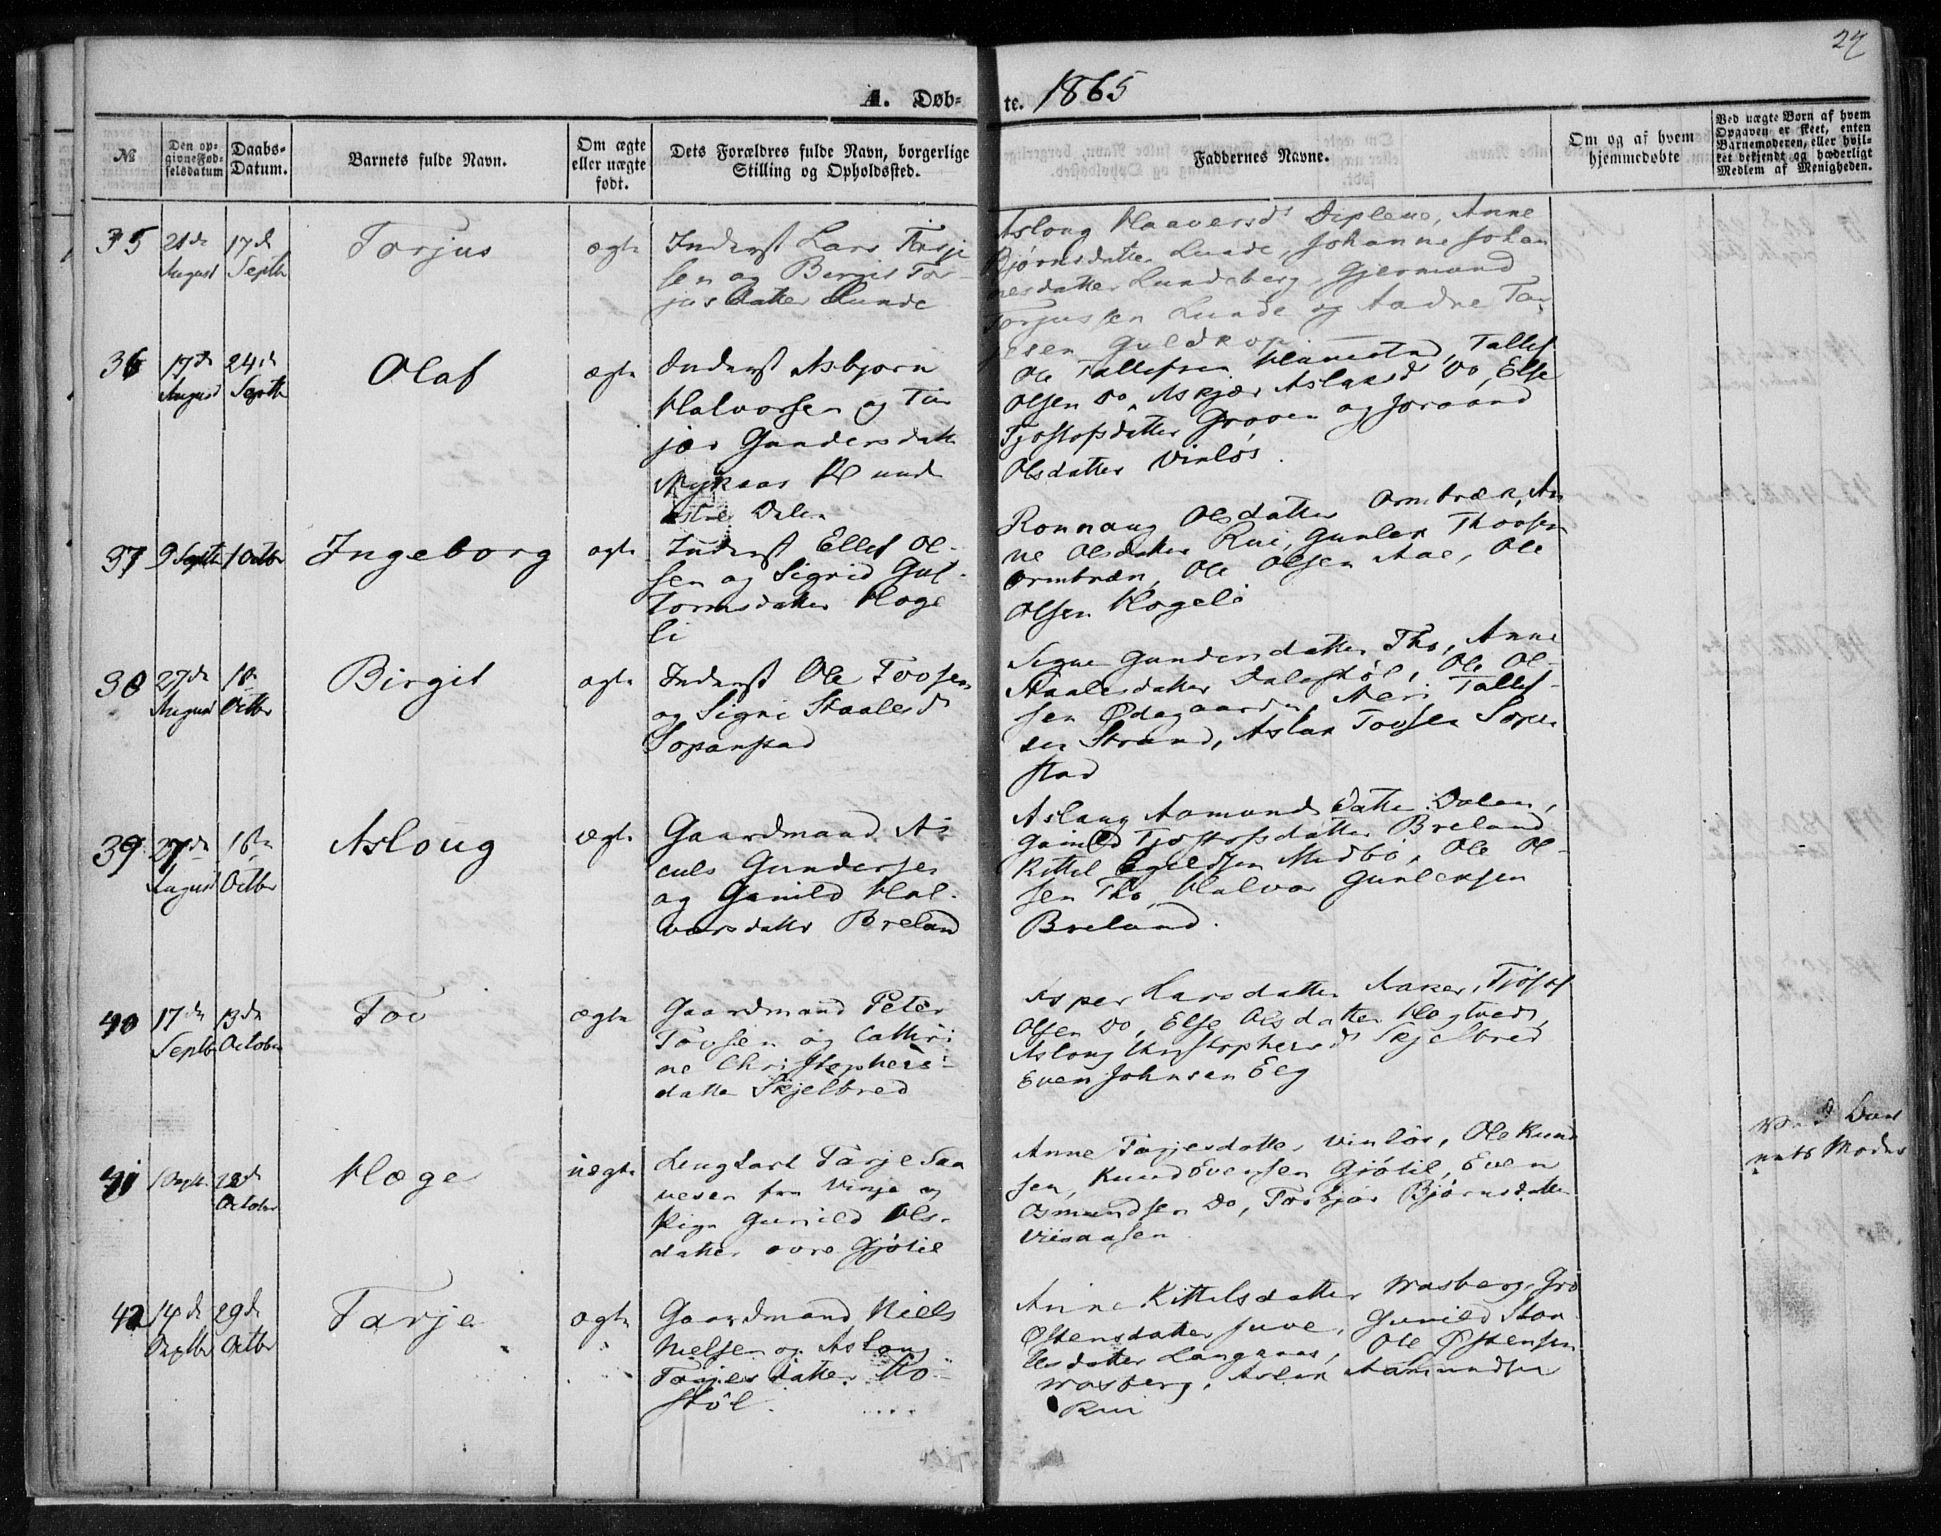 27
A. Døb-
te. 1865
№
Den op-
givne Fød-
selsdatum
Daabs-
Datum.
Barnets fulde Navn.
Om ægte
eller uægte
født.
Dets Forældres fulde Navn, borgerlige
Stilling og Opholdssted.
Faddernes Navne.
Om og af hvem
hjemmedøbte
Ved uægte Børn af hvem
Opgaven er skeet, enten
Barnemoderen, eller hvil-
ket bekjendt og hæderligt
Medlem af Menigheden.
35
21de
August
17de
Septbr
Torjus
ægte
Inderst Lars Tarje
sen og Bergit Tor-
jusdatter Lunde
Aslong Haaversd Diplene, Anne
Bjørnsdatter Lunde, Johanne Johan
nesdatter Lundeberg, Gjermund
Torjussen Lunde og Aadne Tar
jesen Guldkop
36
17de
August
24de
Septbr
Olaf
ægte
Inderst Asbjørn
Halvorsen og Tur
jær Gundersdatter
Nykaas
Dalen
Ole Tallefsen Hamstad, Tallef
Olsen Do, Askjær Aslaksd Do, Else
Tjostofsdatter Groven og Joraand
Olsdatter Vinløs.
37
9 Septbr
1 Octbr
Ingeborg
ægte
Inderst Ellef Ol-
sen og Sigrid Gut-
tormsdatter Hoge
li
Ronnaug Olsdatter Ormbræk, An
ne Olsdatter Rui, Gunlek Thovsen
Ormbræk, Ole Olsen Aae, Ole
Olsen Hogeli
38
27de
August
1ste
Octbr
Birgit
ægte
Inderst Ole Tovsen
og Signe Staalesd
Sopanstad
Signe Gundersdatter Tho, Anne
Staalesdatter Dalestøl, Ole Ol-
sen Ødegaarden, Neri Tallef-
sen Strand, Aslak Tovsen Sopan
stad
39
27de
August
1ste
Octbr
Asloug
ægte
Gaardmand As
culs Gundersen
og Gunild Hal-
vorsdatter Breland
Aslaug Aamundsdatter Dalen,
Gunild Tjostofsdatter Breland
Kittel Egildsen Midbø, Ole Ol-
sen Tho, Halvor Gunleksen
Breland.
40
17de
Septbr
13de
October
Tov
ægte
Gaardmand Peter
Tovsen og Cathri
ne Christophers-
datter Skjelbred
Asper Larsdatter Aaker, Tjostof
Olsen Do, Else Olsdatter Hegtvedt,
Aslong Christophersd Skjelbred
Even Johnsen Eeg
41
1 Septbr
22de
October
Hæge
uægte
Ungkarl Tarje Saa
vesen fra Vinje og
Pige Gunild Ols-
datter øvre Gjøtil
Anne Tarjesdatter Vinløs, Ole Knud
sen, Knud Evensen Gjøtil, Even
Osmundsen Do, Torbjør Bjørnsdatter
Viisaasen
Ved Bar
nets Moder
42
14de
Septbr
29de
Octbr
Tarje
ægte
Gaardmand Niels
Nielsen og Asloug
Tarjesdatter Ro-
støl.
Anne Kittelsdatter Wraaberg, Gro
Østensdatter Juve, Gunild Staa
lesdatter Langaas, Ole Østensen
Wraaberg, Aslak Aamundsen
Rui